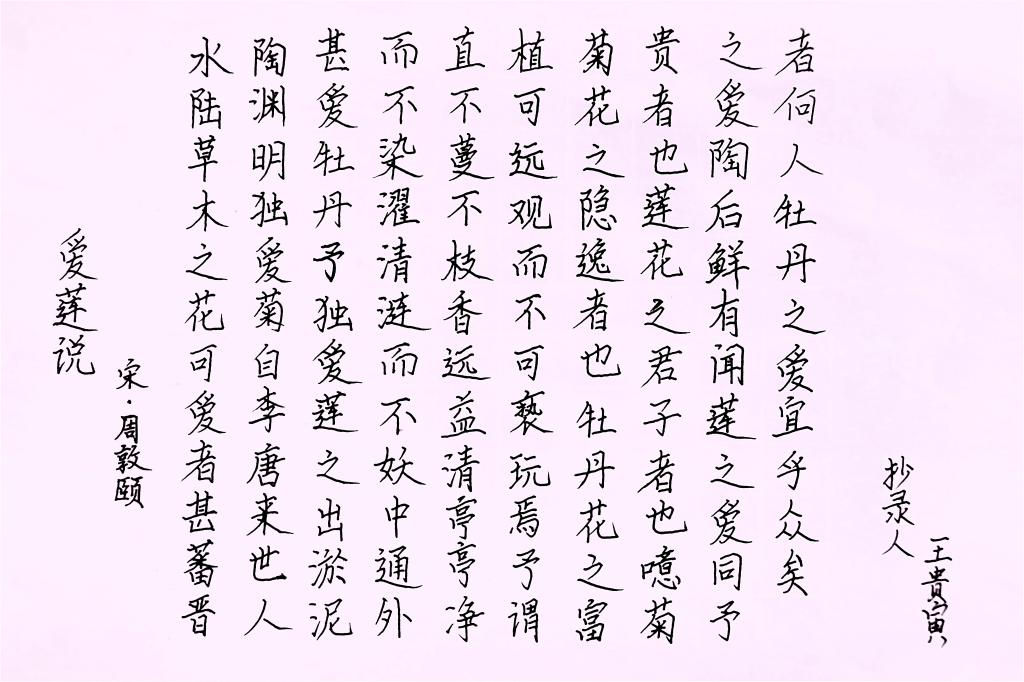 爱莲说
宋·周敦颐
水陆草木之花可爱者甚蕃晋
陶渊明独爱菊自李唐来世人
甚爱牡丹予独爱莲之出淤泥
而不染濯清涟而不妖中通外
直不蔓不枝香远益清亭亭净
植可远观而不可亵玩焉予谓
菊花之隐逸者也牡丹花之富
贵者也莲花之君子者也噫菊
之爱陶后鲜有闻莲之爱同予
者何人牡丹之爱宜乎众矣
抄录人
王貴寅